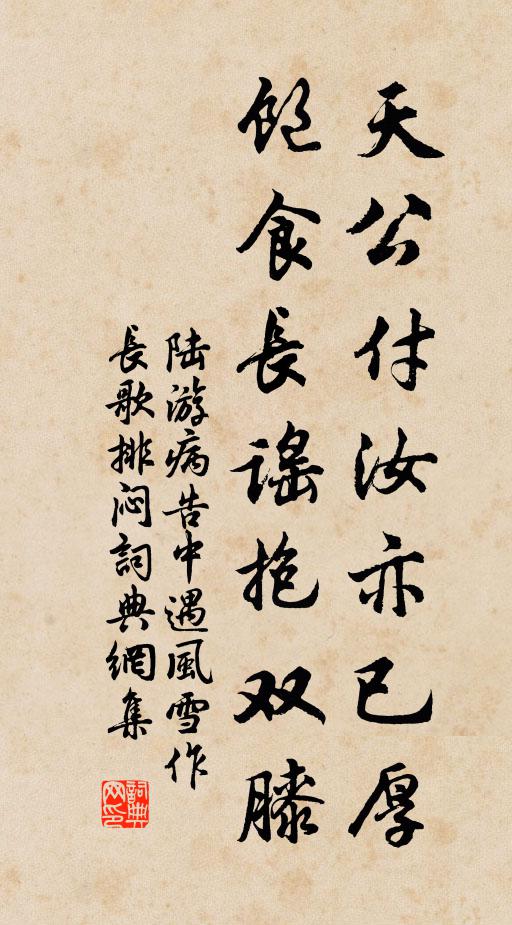 天公付汝亦已厚
飽食長謡抱双膝
陆游病告中遇風雪作
長歌排闷詞典網集
詞典
网印